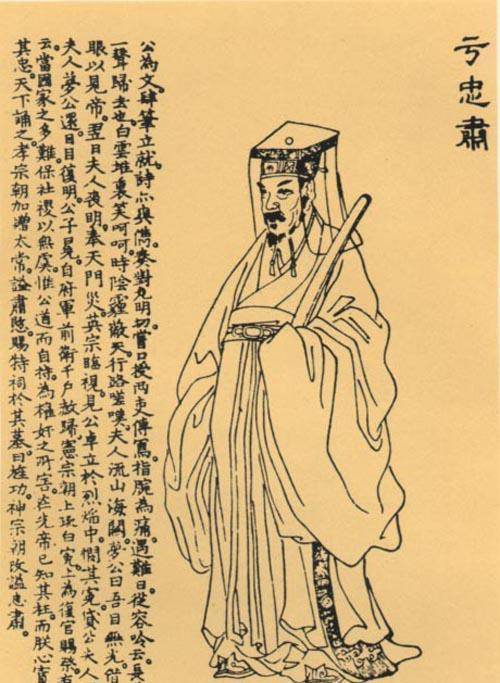 亏忠肅
公為文。肆筆立就。詩亦與偕。奏對尤明切。嘗口授两吏傳寫。指腕為痛。遇難日。從容吟云。長
一聲歸去也。白雲堆裏笑呵呵。時陰霾蔽天。行路嗟嘆。夫人流山海關。夢公曰。吾目無光。借
眼以見帝。翌日夫人喪明。奉天門災。英宗臨視。見公卓立於烈焰中。憫其寃。貸公夫人
夫人夢公還目。目復明。公子冕。自府軍前衛千戶赦歸。憲宗朝上疏白寃。上為復官賜祭。有
云。當國家之多難。保社稷以無虞。惟公道而自持。為權奸之所害。在先帝已知其枉。而朕心實
其忠。天下誦之。孝宗朝加贈太常。謚肅愍。賜特祠於其墓。曰旌功。神宗朝改謚忠肅。